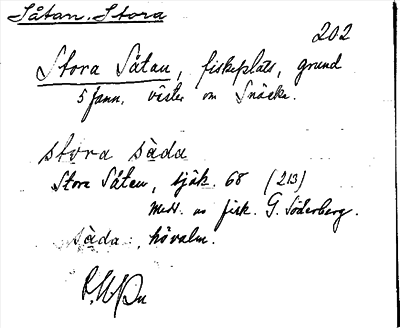 Såtan. Stora
202
Stora Såtan, fiskeplats, grund
5 famn, väster om Snäcke.
stora såda
Stora Såten, sjök. 68 (213)
Medd. av fisk. G. Söderberg.
såda:, hövalm.